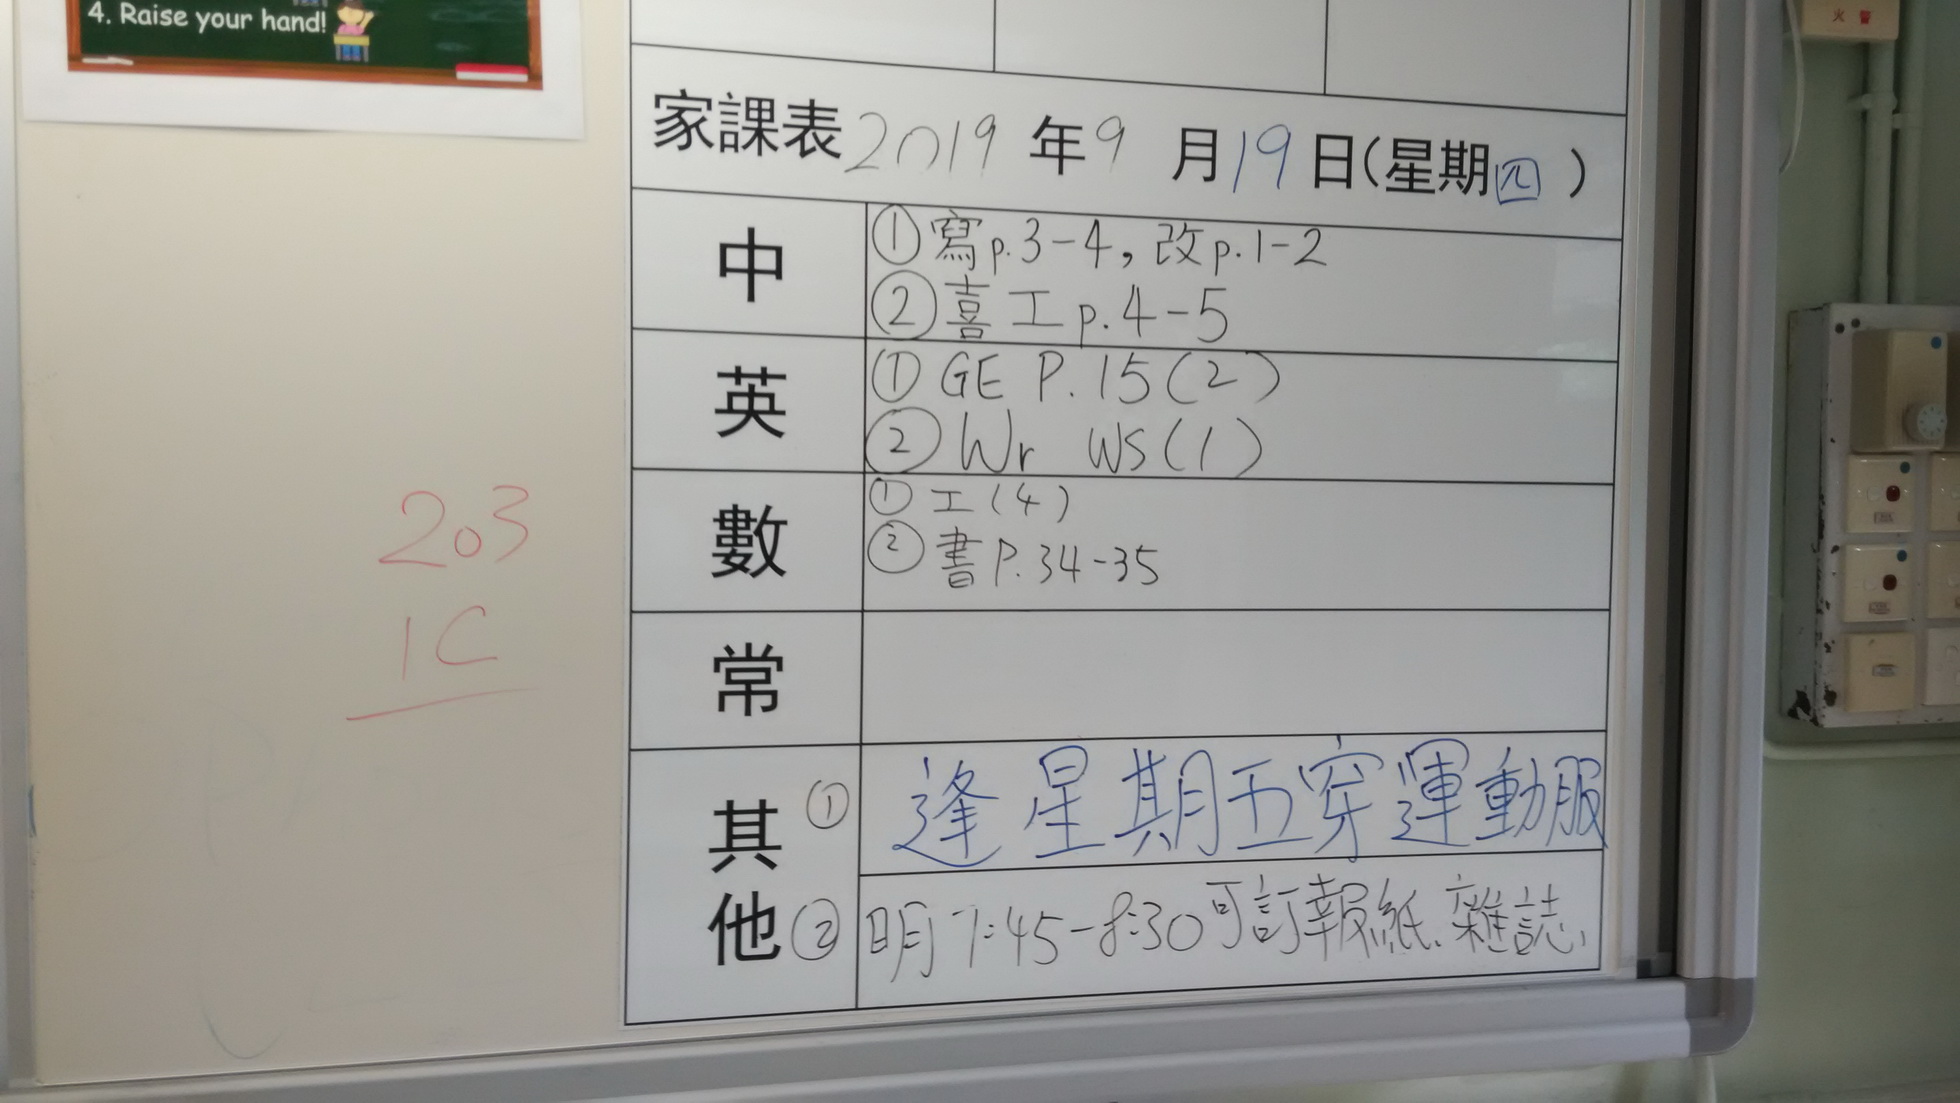 4. Raise your hand!
火警
家課表 2019 年 9 月 19 日(星期四)
中
① 寫p.3-4,改p.1-2
② 喜工p.4-5
英
① GE P.15(2)
② Wr WS(1)
數
① 工(4)
② 書P.34-35
常
其他
① 逢星期五穿運動服
② 明7:45-8:30可訂報紙、雜誌、
203
1C